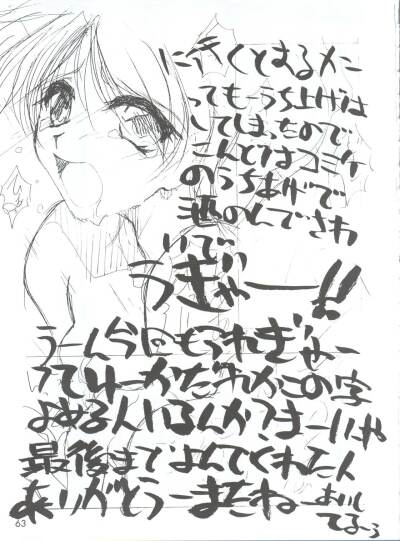 に行くとするメニ
ってもーうち上げは
してしまったので
こんどはコミケ
のうちあげで
酒のんでさわ
いでい
うぎゃー!!
うーん今回もつかれぎゃー
ってゆーかだれかこの字
よめる人いるんか?まーいいや
最後までよんでくれた人
ありがとうーまたねー
あいし
てるーろ
63